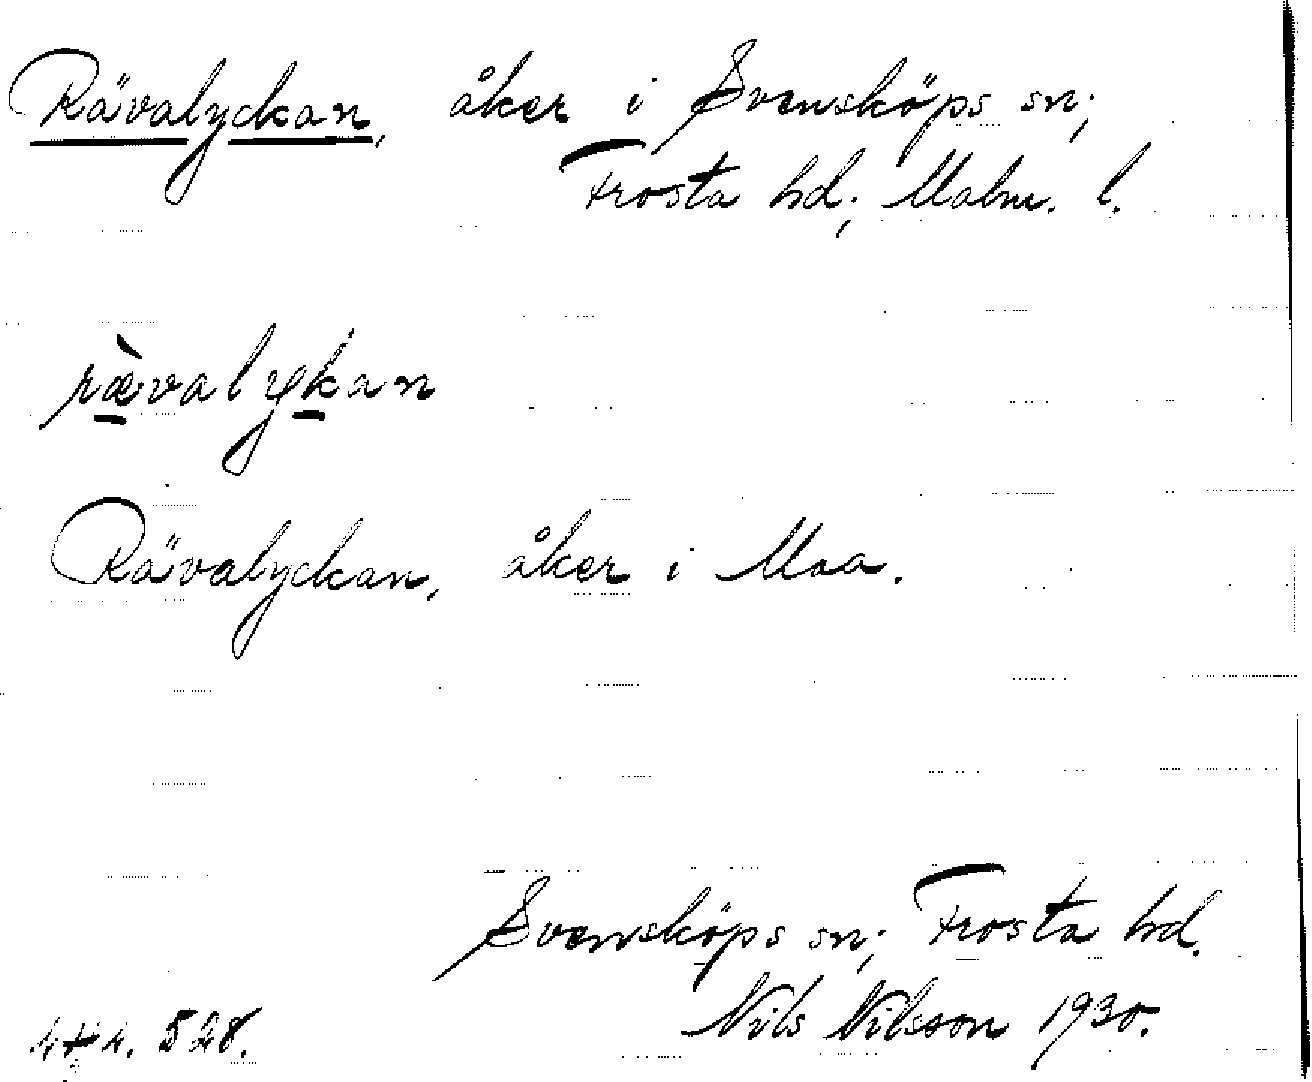 Rävalyckan, åker i Svensköps sn;
Frosta hd; Malm. l.
rævalykan
Rävalyckan, åker i Maa.
Svensköps sn; Frosta hd.
Nils Nilsson 1930.
528.